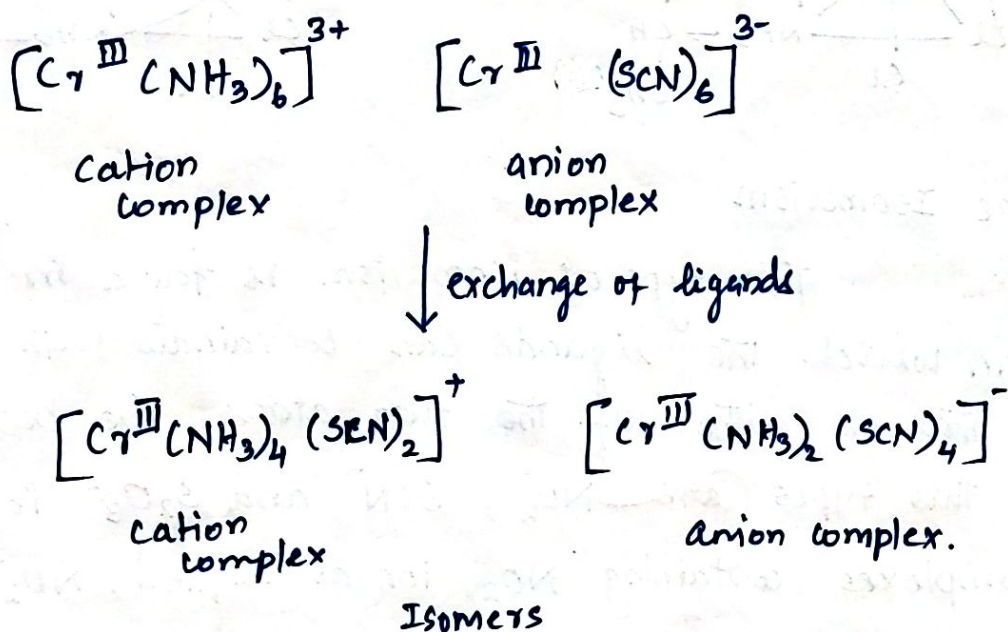 [Cr^III (NH3)6]^3+ [Cr^III (SCN)6]^3-
cation anion
complex complex
exchange of ligands
[Cr^III (NH3)4 (SCN)2]^+ [Cr^III (NH3)2 (SCN)4]^-
cation anion complex.
complex
Isomers